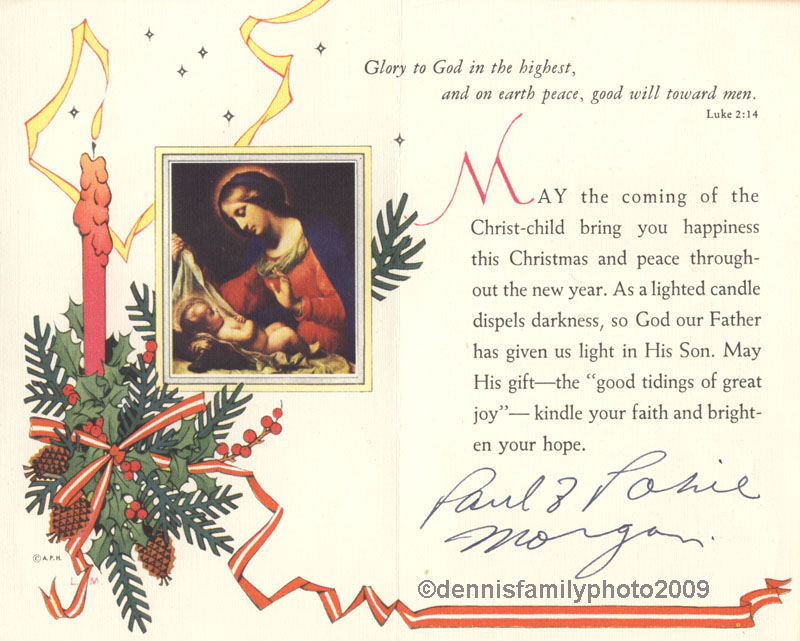 Glory to God in the highest,
and on earth peace, good will toward men.
Luke 2:14
MAY the coming of the
Christ-child bring you happiness
this Christmas and peace through-
out the new year. As a lighted candle
dispels darkness, so God our Father
has given us light in His Son. May
His gift—the “good tidings of great
joy”— kindle your faith and bright-
en your hope.
Paul &
Morgan.
© A.P.H.
L. M.
©dennisfamilyphoto2009